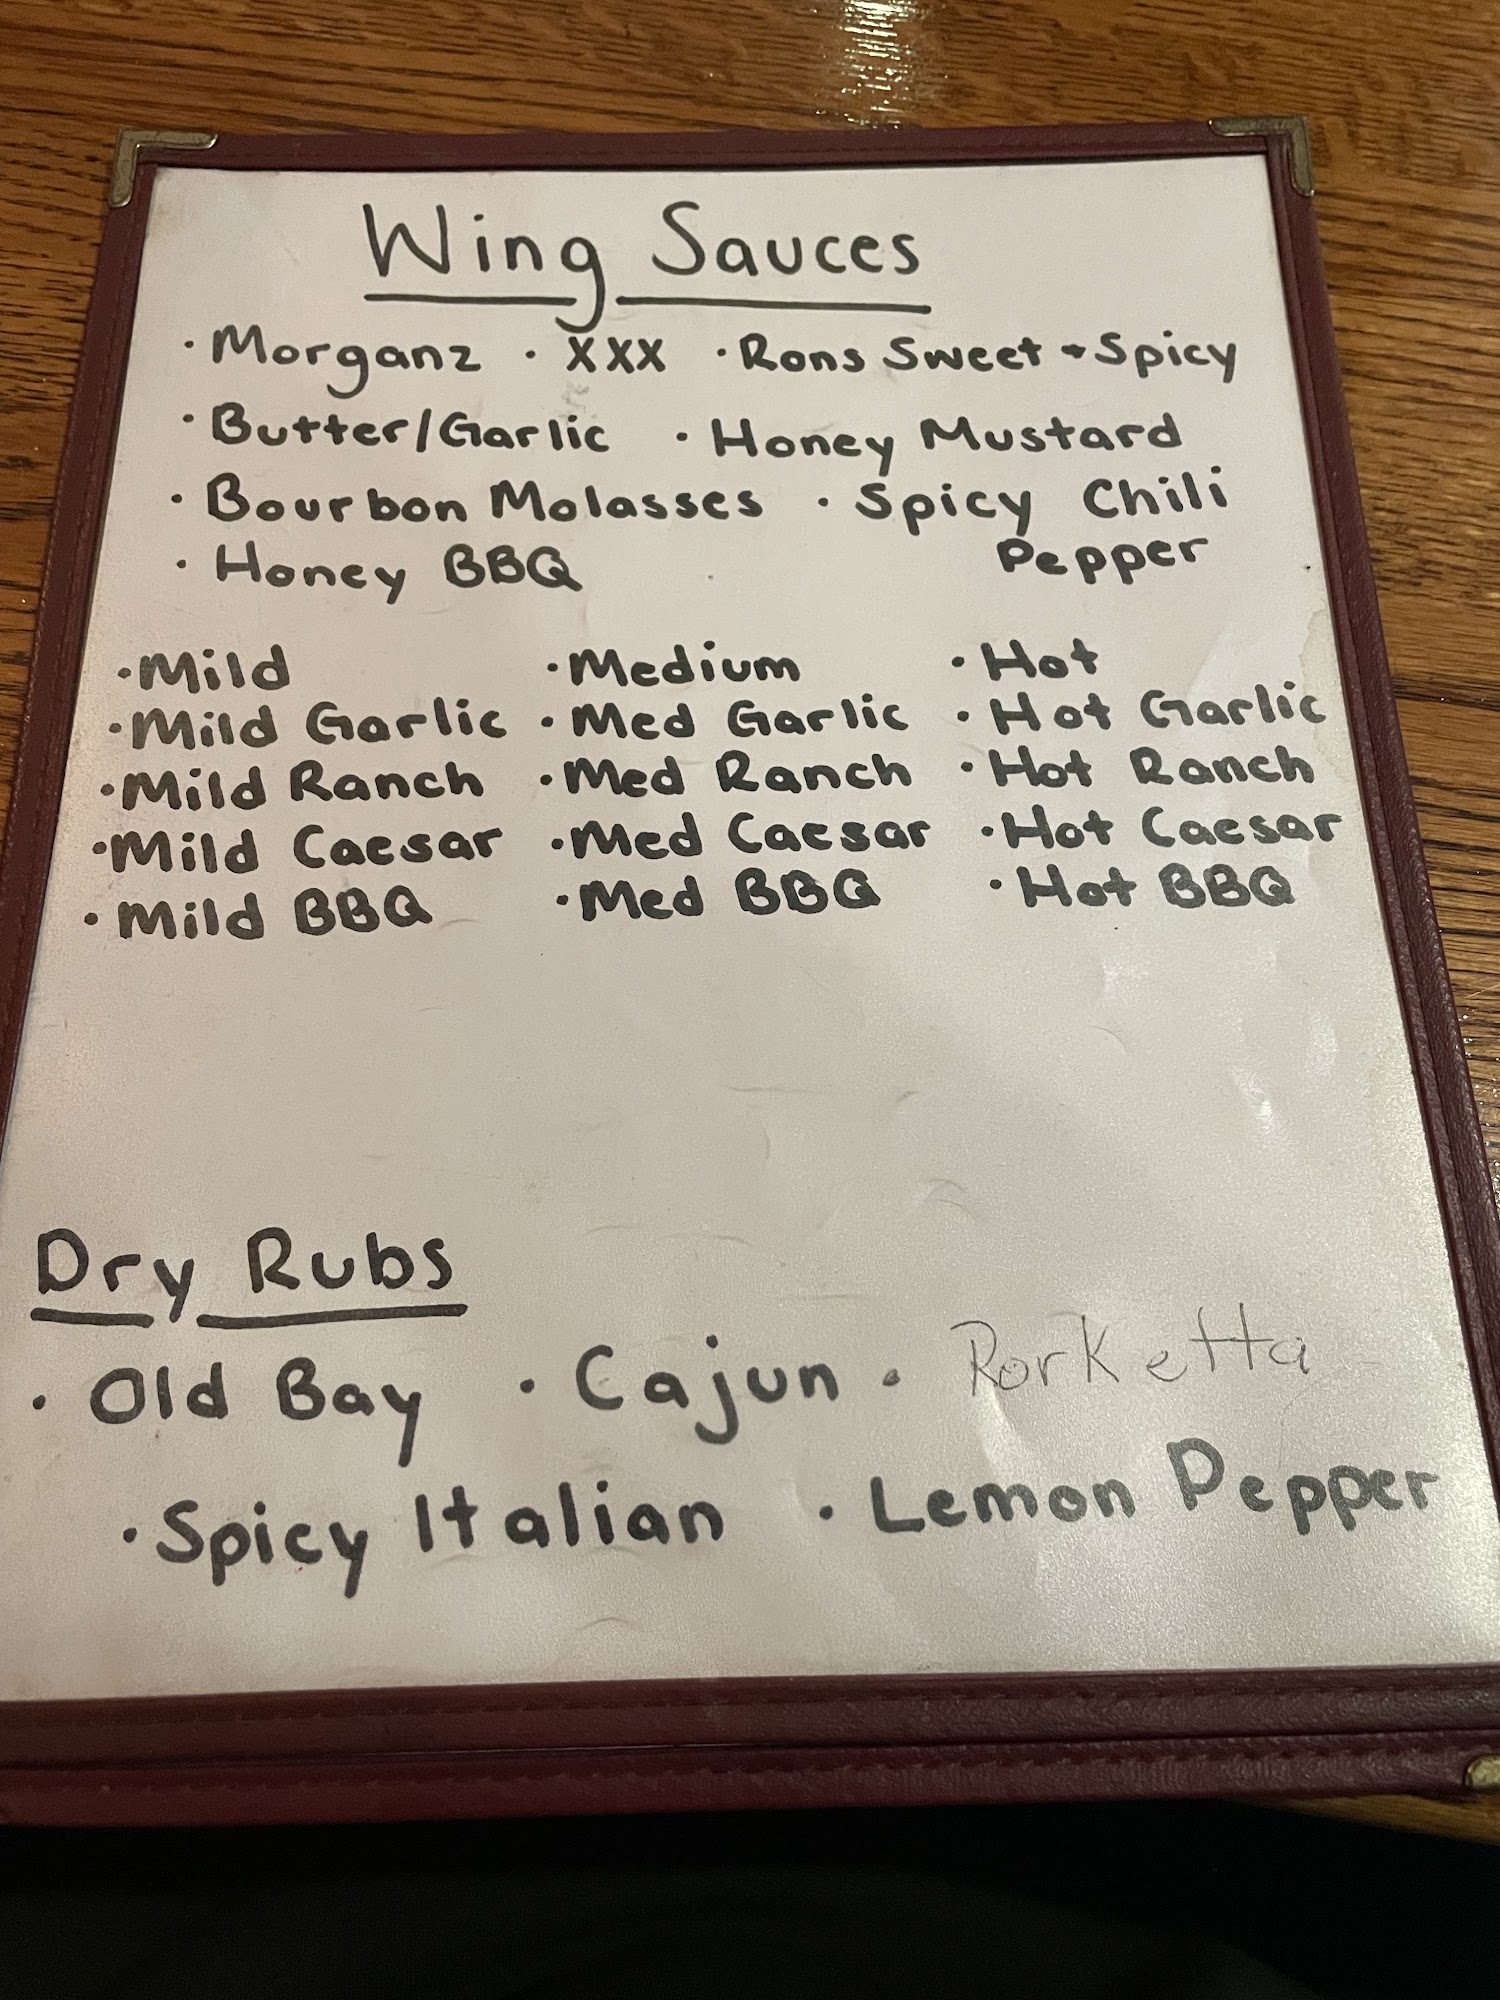 Wing Sauces
· Morganz · XXX · Rons Sweet + Spicy
· Butter/Garlic · Honey Mustard
· Bourbon Molasses · Spicy Chili
Pepper
· Honey BBQ
· Mild · Medium · Hot
· Mild Garlic · Med Garlic · Hot Garlic
· Mild Ranch · Med Ranch · Hot Ranch
· Mild Caesar · Med Caesar · Hot Caesar
· Mild BBQ · Med BBQ · Hot BBQ
Dry Rubs
· Old Bay · Cajun · Rorketta
· Spicy Italian · Lemon Pepper